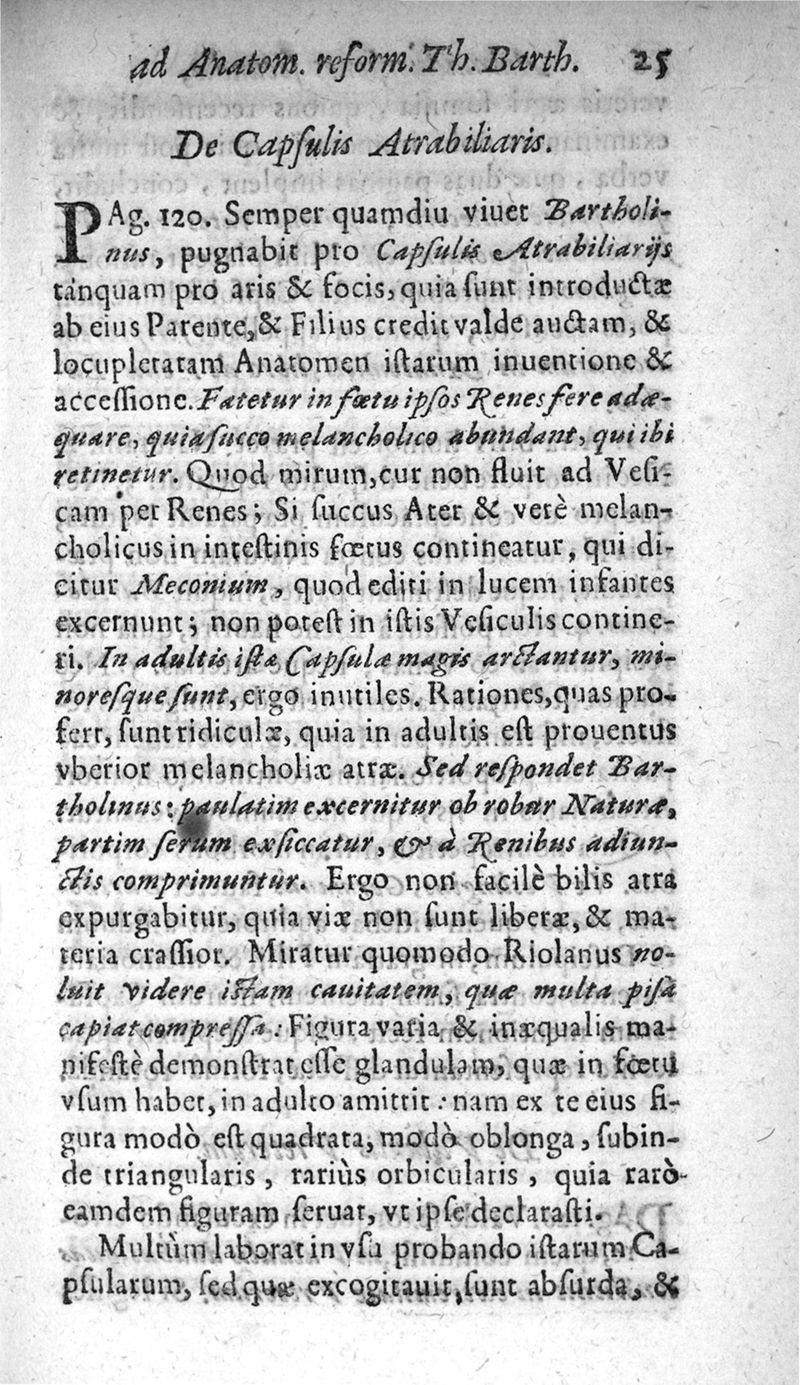 ad Anatom. reform. Th. Barth. 25
De Capſulis Atrabiliaris.
PAg. 120. Semper quamdiu viuet Bartholi-
nus, pugnabit pro Capſulis Atrabiliarijs
tanquam pro aris & focis, quia ſunt introductæ
ab eius Parente, & Filius credit valde auctam, &
locupletatam Anatomen iſtarum inuentione &
acceſſione. Fatetur in fœtu ipſos Renes fere adæ-
quare, quia ſucco melancholico abundant, qui ibi
retinetur. Quod mirum, cur non fluit ad Veſi-
cam per Renes; Si ſuccus Ater & verè melan-
cholicus in inteſtinis fœtus contineatur, qui di-
citur Meconium, quod editi in lucem infantes
excernunt; non poteſt in iſtis Veſiculis contine-
ri. In adultis iſtæ Capſulæ magis arctantur, mi-
noreſque ſunt, ergo inutiles. Rationes, quas pro-
fert, ſunt ridiculæ, quia in adultis eſt prouentus
vberior melancholiæ atræ. Sed reſpondet Bar-
tholinus: paulatim excernitur ob robur Naturæ,
partim ſerum exſiccatur, & à Renibus adiun-
ctis comprimuntur. Ergo non facilè bilis atra
expurgabitur, quia viæ non ſunt liberæ, & ma-
teria craſſior. Miratur quomodo Riolanus no-
luit videre iſtam cauitatem, quæ multa piſa
capiat compreſſa: Figura varia & inæqualis ma-
nifeſtè demonſtrat eſſe glandulam, quæ in fœtu
vſum habet, in adulto amittit: nam ex te eius fi-
gura modò eſt quadrata, modò oblonga, ſubin-
de triangularis, rariùs orbicularis, quia rarò
eamdem figuram ſeruat, vt ipſe declaraſti.
Multùm laborat in vſu probando iſtarum Ca-
pſularum, ſed quæ excogitauit, ſunt abſurda, &